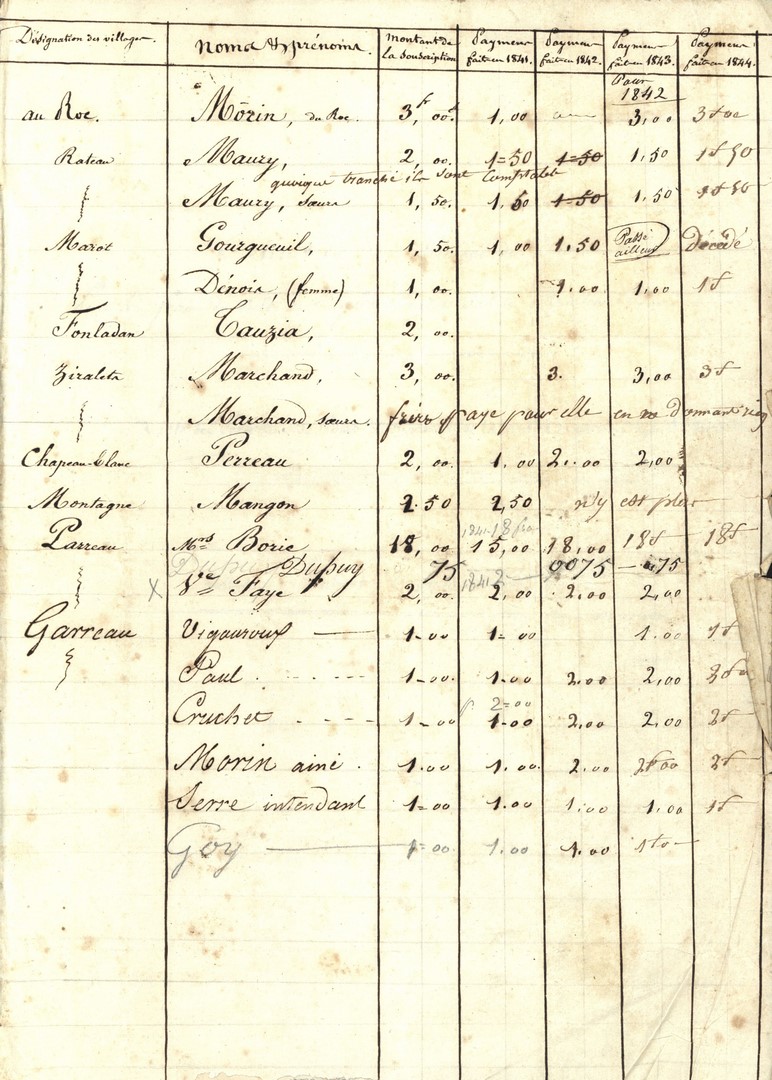 Désignation des villages. Noms & prénoms. Montant de la souscription Paymens faits en 1841. Paymens faits en 1842. Paymens faits en 1843. Paymens faits en 1844.
Pour 1842
au Roc. Morin, du Roc. 3f, 00c. 1,00 3,00 3f00
Rateau Maury, 2, 00. 1=50 1=50 1,50 1f50
quoique tranché ils sont comptable
Maury, sœurs 1, 50. 1,50 1=50 1,50 1f50
Marot Gourgueuil, 1, 50. 1,00 1.50 Passé ailleurs Décédé
Dénoix, (femme) 1, 00. 1.00 1,00 1f
Fonladan Cauzia, 2, 00.
Ziraleta Marchand, 3, 00. 3. 3,00 3f
Marchand, sœurs. frère paye pour elle en ne donnant rien
Chapeau-blanc Perreau 2, 00. 1,00 2.00 2,00
Montagne Mangon 2.50 2,50 n'y est plus
1841. 18 fra
Parreau Mrs Borie 18,00 15,00 18,00 18f 18f
Dupuy Dupuy 75 0075 — 75
X Ve Faye 2,00 1842 2,00 2,00 2,00
Garreau Vigouroux — 1-00 1=00 1.00 1f
Paul . - - - - 1-00 1.00 2.00 2,00 2f00
p. 2=00
Cruchet - - - - 1-00 1-00 2,00 2,00 2f
Morin ainé . 1.00 1.00. 2.00 2f00 2f
Serre intendant 1=00 1.00 1,00 1,00 1f
Goy — 1=00 1.00 1.00 1f